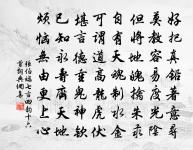 好把真鉛著意尋
莫教容易度光陰
但將地魄擒朱汞
自有天魂制水金
可謂道高龍虎伏
堪言德重鬼神欽
已知永壽齊天地
煩惱無由更上心
張伯端七言四韻十六首